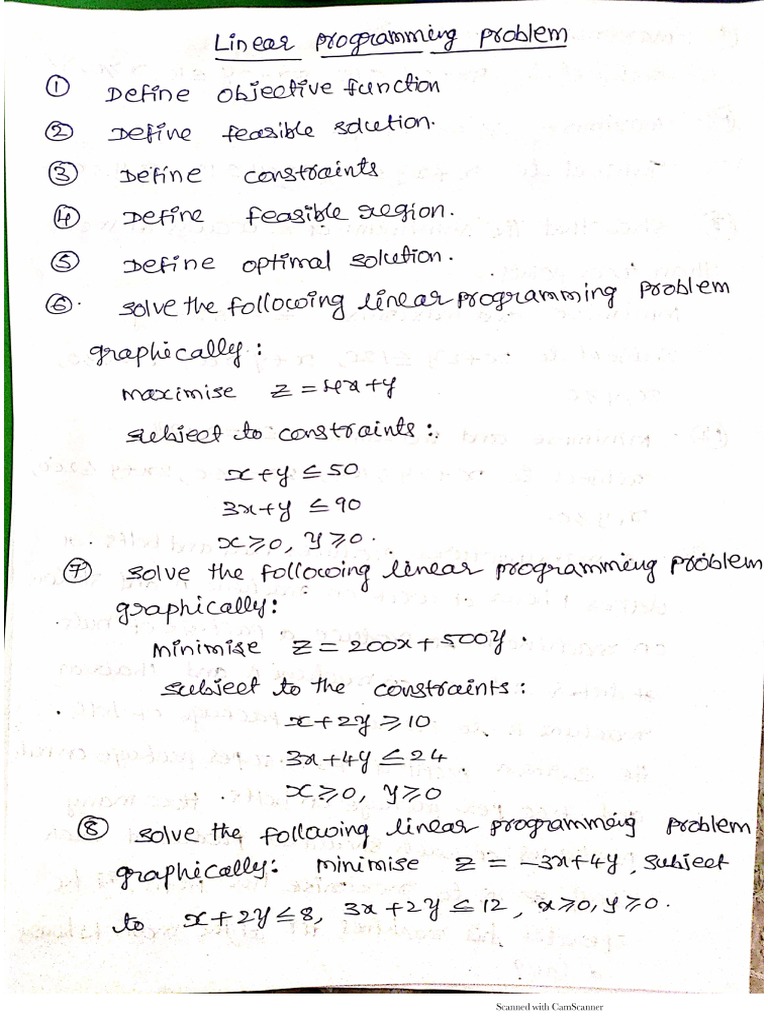 Linear programming problem
① Define objective function
② Define feasible solution.
③ Define constraints
④ Define feasible region.
⑤ Define optimal solution.
⑥. Solve the following linear programming problem
graphically:
maximise Z = 4x+y
subject to constraints:
x+y ≤ 50
3x+y ≤ 90
x≥0, y≥0.
⑦ Solve the following linear programming problem
graphically:
minimise Z = 200x+500y.
subject to the constraints:
x+2y ≥ 10
3x+4y ≤ 24
x≥0, y≥0
⑧ Solve the following linear programming problem
graphically: minimise Z = -3x+4y, subject
to x+2y ≤ 8, 3x+2y ≤ 12, x≥0, y≥0.
Scanned with CamScanner